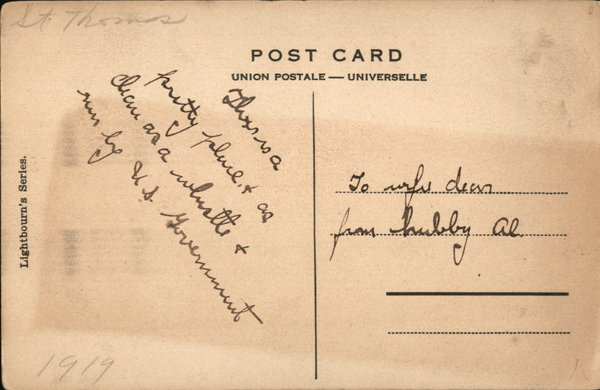 St. Thomas
POST CARD
UNION POSTALE — UNIVERSELLE
This is a
pretty place & as
clean as a whistle &
run by U.S. Government
To wife dear
from hubby Al
Lightbourn's Series.
1919